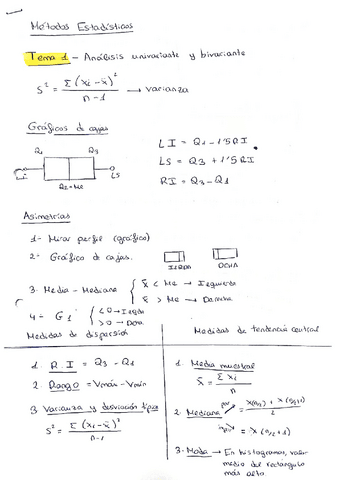 Métodos Estadísticos
Tema 1 - Análisis univariante y bivariante
S² = Σ(xi - x̄)² / n-1 → varianza
Gráficos de cajas
Q1 Q3
LI LS
Q2=Me
LI = Q1 - 1'5RI
LS = Q3 + 1'5RI
RI = Q3 - Q1
Asimetrías
1- Mirar perfil (gráfico)
2- Gráfico de cajas.
IZQDA DCHA
3- Media - Mediana { x̄ < Me → Izquierda
x̄ > Me → Derecha
4- G1 { <0 → Izquierd
>0 → Dcha.
Medidas de dispersión
1. R.I = Q3 - Q1
2. Rango = Vmáx - Vmín
3. Varianza y desviación típica
S² = Σ(xi - x̄)² / n-1
Medidas de tendencia central
1. Media muestral
x̄ = Σxi / n
2. Mediana par = X(n/2) + X(n/2+1) / 2
imp. = X(n/2+1)
3- Moda → En histogramas, valor
medio del rectángulo
más alto